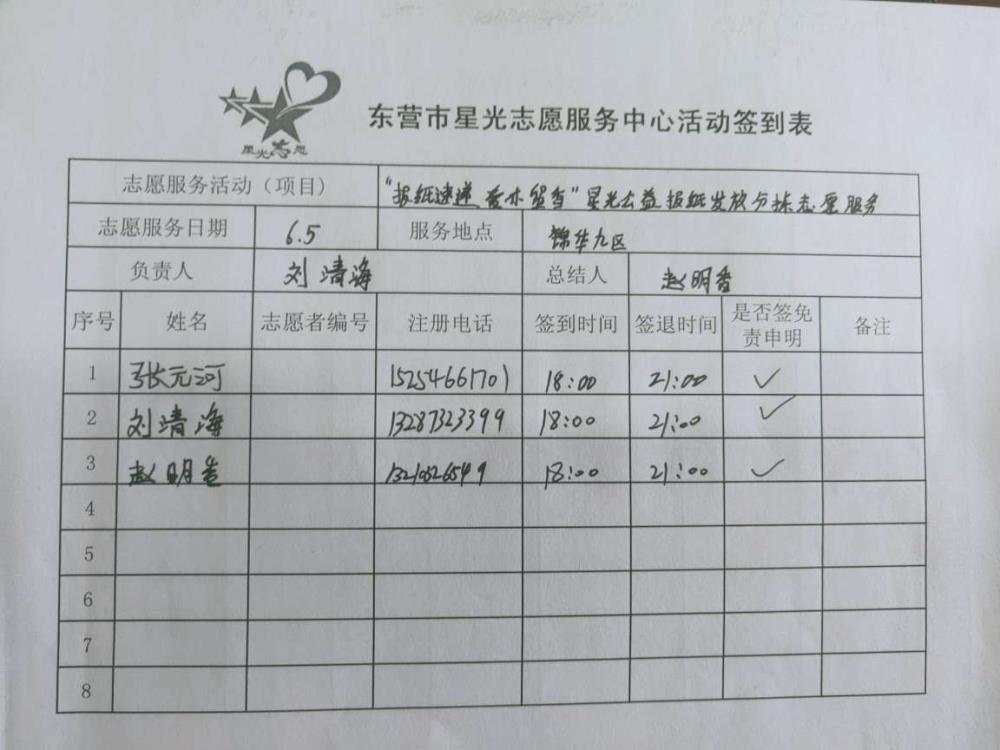 星光志愿
东营市星光志愿服务中心活动签到表
志愿服务活动（项目） "报纸速递 爱心留香"星光公益报纸发放分拣志愿服务
志愿服务日期 6.5 服务地点 锦华九区
负责人 刘靖海 总结人 赵明香
序号 姓名 志愿者编号 注册电话 签到时间 签退时间 是否签免责申明 备注
1 张元河 15254661701 18:00 21:00 ✓
2 刘靖海 13287323399 18:00 21:00 ✓
3 赵明香 18:00 21:00 ✓
4
5
6
7
8